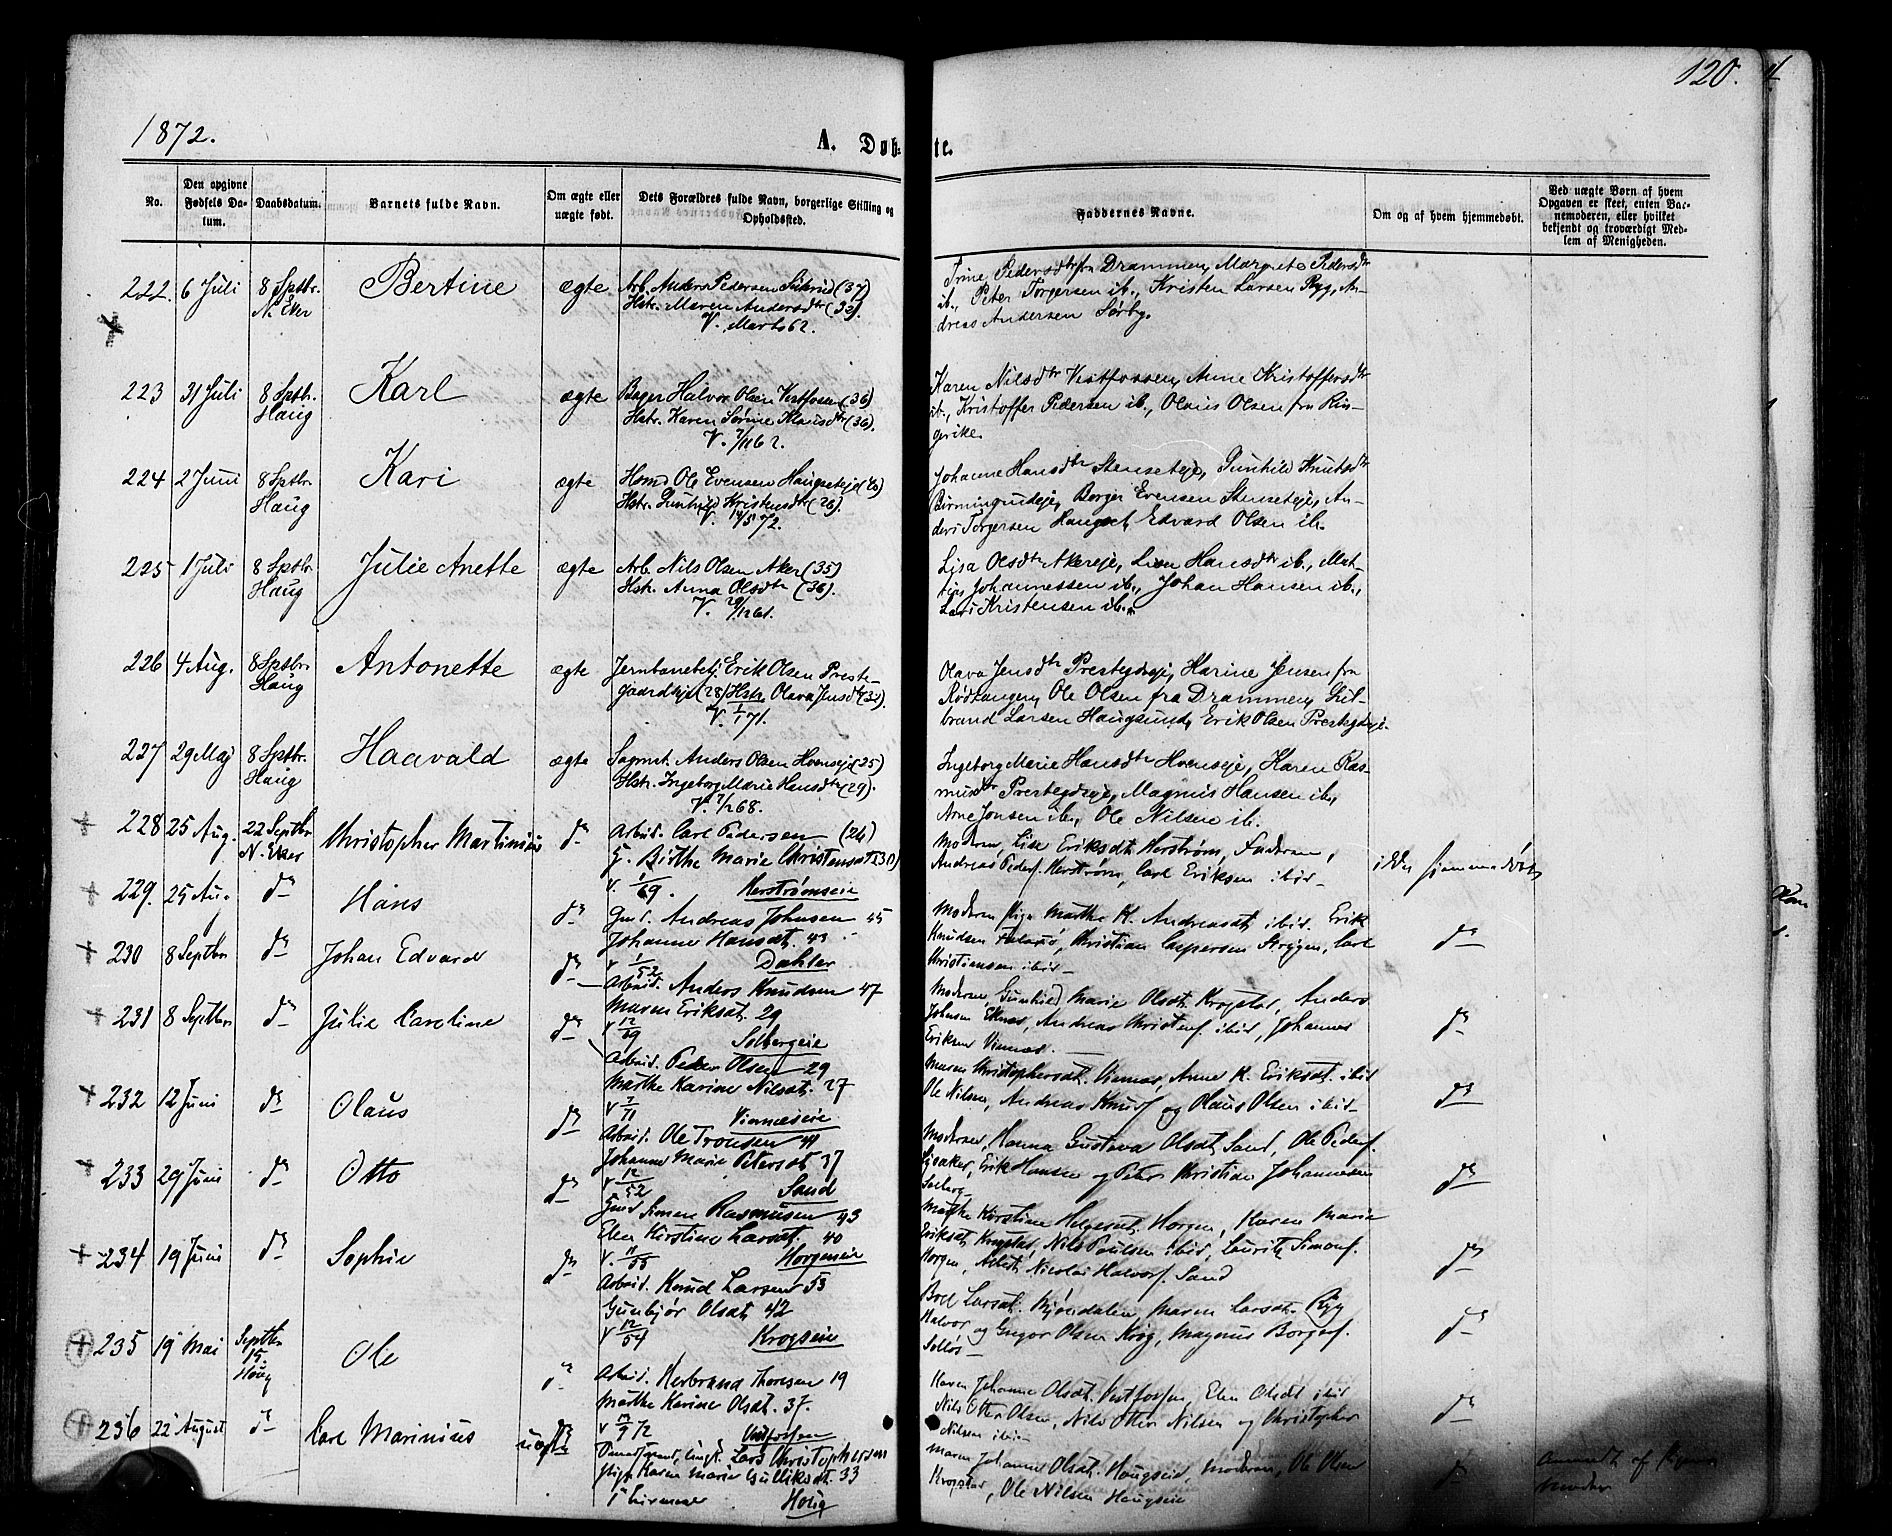 120.
1872.
A. Døb-te.
No.
Den opgivne Fødsels Da-tum.
Daabsdatum.
Barnets fulde Navn.
Om ægte eller uægte født.
Dets Forældres fulde Navn, borgerlige Stilling og Opholdssted.
Faddernes Navne.
Om og af hvem hjemmedøbt.
Ved uægte Børn af hvem Opgaven er skeet, enten Bar-nemoderen, eller hvilket bekjendt og troværdigt Med-lem af Menigheden.
222. 6 Juli 8 Sptbr. N. Eker Bertine ægte
Arb. Anders Pedersen (37)
Hstr. Maren Andersdtr (32).
V. Marts 62.
Trine Pedersdtr fra Drammen, Margrete Pedersdtr
ib., Peter Torgersen ib., Kristen Larsen Ryg, An-
dreas Andersen Sørby.
223 31 Juli 8 Sptbr. Haug Karl ægte
Bager Halvor Olsen Vestfossen (36)
Hstr. Karen Sørine Klausdtr (36).
V. 7/11 62.
Karen Nilsdtr Vestfossen, Anne Kristoffersdtr
ib., Kristoffer Pedersen ib., Olaus Olsen fra Rin-
gerike.
224 2 Juni 8 Sptbr. Haug Kari ægte
Hsmd Ole Evensen Haugseteje
Hstr. Gunhild Kristensdtr (26).
V. 14/5 72.
Johanne Hansdtr Stenseteje, Gunhild Knutsdtr
Borger Evensen Stenseteje, An-
ders Torgersen Edvard Olsen ib.
225 1 Juli 8 Sptbr. Haug Julie Anette ægte
Arb. Nils Olsen Aker (35)
Hstr. Anna Olsdtr (36).
V. 29/12 61.
Lisa Olsdtr Akereje, Lisa Hansdtr ib., Mat-
tias Johannessen ib., Johan Hansen ib.,
Lars Kristensen ib.
226 4 Aug. 8 Sptbr. Haug Antonette ægte
Jernbanebetj. Erik Olsen Preste-
gaardseje (28) Hstr. Olava Jensdtr (32).
V. 1/1 71.
Olava Jensdtr Prestegdseje, Harine Jensen fra
Rødtangen, Ole Olsen fra Drammen, Gul-
brand Larsen Haugsund, Erik Olsen Prestegdseje.
227 29 Maj 8 Sptbr. Haug Haavald ægte
Sagmst. Anders Olsen Hvenseje (25)
Hstr. Ingeborg Marie Hansdtr (29).
V. 7/2 68.
Ingeborg Marie Hansdtr Hvenseje, Karen Ras-
musdtr Prestegdseje, Magnus Hansen ib.,
Arne Jonsen ib., Ole Nilsen ib.
228 25 Aug. 22 Septbr N. Eker Christopher Martinius do
Arbeid. Carl Pedersen (26)
G. Birthe Marie Christensdt (30)
V. 1/69. Herstrømseie
Moderen, Lise Eriksdt. Herstrøm, Faderen,
Andreas Peders. Herstrøm, Carl Eriksen ibid.
ikke hjemmedøbt
229. 25 Aug. do Hans do
Gmd. Andreas Johnsen 45
Johanne Hansdt. 43
V 1/52 Dahler
Moderen, Pige Marthe K. Andreasdt. ibid. Erik
Knudsen Christian Caspersen Carl
Christiansen ibid.
do
230 8 Septbr do Johan Edvard do
Arbeid. Anders Knudsen 47
Maren Eriksdt. 29
V 12/69 Solbergeie
Moderen, Gunhild Marie Olsdt. Krogstad, Anders
Johnsen Andreas Christens. ibid, Johannes
Eriksen Vinnæs.
do
231 8 Septbr do Julie Caroline do
Arbeid. Peder Olsen 29
Marthe Karine Nilsdt. 27
V 7/11 Vinnæseie
Maren Christophersdt. Vinnæs, Anne K. Eriksdt. ibid
Ole Nilsen, Andreas Knuds. og Olaus Olsen ibid
do
232 12 Juni do Olaus do
Arbeid. Ole Tronsen 41
Johanne Marie Petersdt 37
V 12/52 Sand
Moderen, Hanna Gustava Olsdt. Sand, Ole Peders.
Erik Hansen og Peter Christian Johannesen
Solberg
do
233 29 Juni do Otto do
Gmd Simen Rasmussen 43
Elen Kirstine Larsdt. 40
V. 11/53 Horgeneie
Marthe Kirstine Helgesdt. Horgen, Karen Marie
Eriksdt. Krogstad, Nils Paulsen ibid, Lauritz Simens.
Horgen, Nicolai Halvors. Sand
do
234 19 Juni do Sophie do
Arbeid. Knud Larsen 53
Gunbjør Olsdt 42
V 12/54 Krogseie
Boel Larsdt. Mjøndalen, Maren Larsdt. Ryg
Halvor og Gregor Olsen Krog, Magnus Borgers.
Solløs
do
235 19 Mai Septbr 15. Houg Ole do
Arbeid. Herbrand Thoresen 19
Marthe Karine Olsdt. 37.
V 72 Vestfossen
Karen Johanne Olsdt. Vestfossen, Elen Olsdt ibid
Nils Otter Olsen, Nils Otter Nilsen og Christopher
Nilsen ibid
do
236 22 August do Carl Marinius uægte
Lars Christophersen
Pige Karen Marie Gulliksdt. 33
Houg
Maren Johanne Olsdt. Hougseie, Moderen, Ole Olsen
Krogstad, Ole Nilsen Hougseie
do
Anmeldt af Pigens
Moder